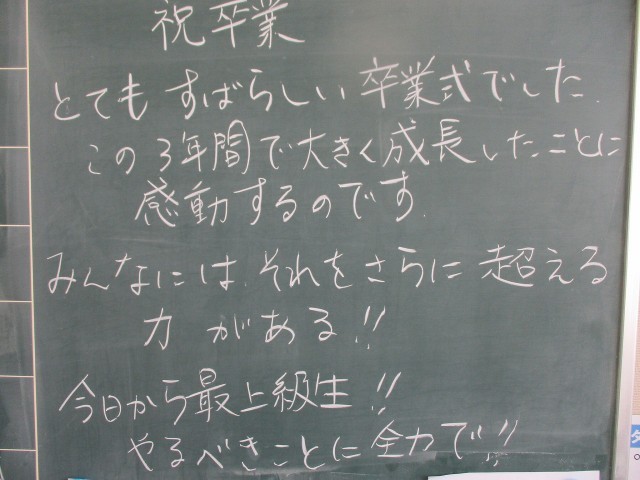 祝卒業
とてもすばらしい卒業式でした.
この3年間で大きく成長したことに
感動するのです.
みんなには.それをさらに超える
力がある!!
今日から最上級生!!
やるべきことに全力で!!